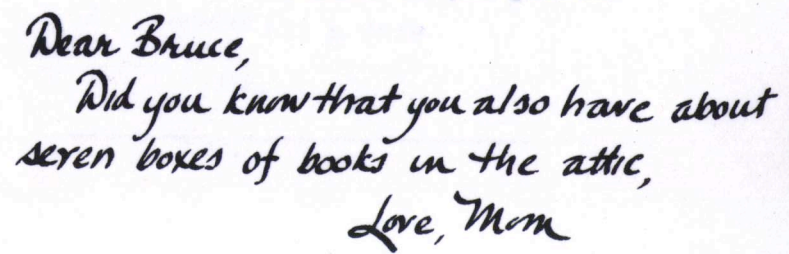 Dear Bruce,
Did you know that you also have about
seven boxes of books in the attic,
Love, Mom